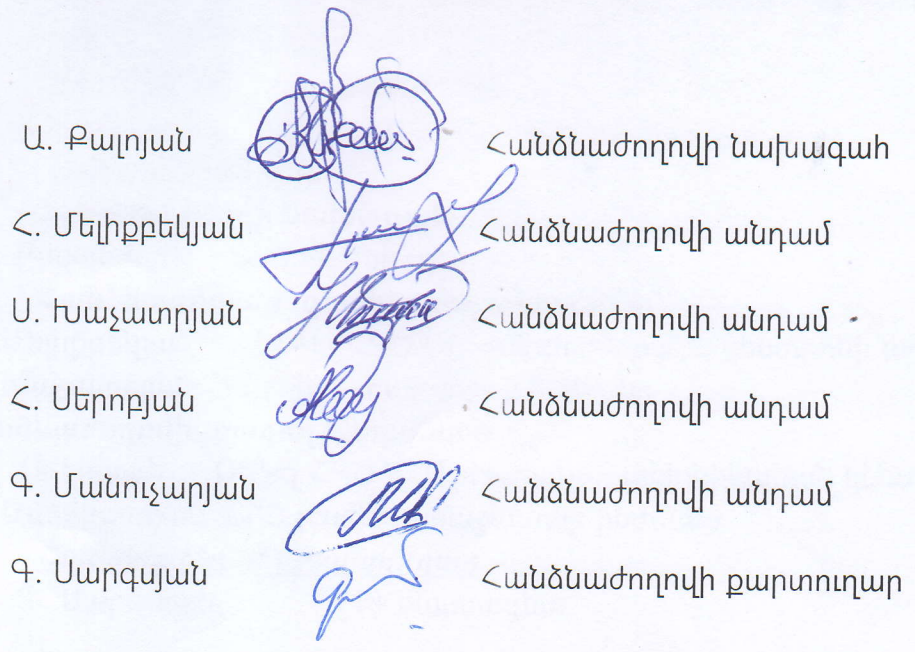 Ա. Քալոյան Հանձնաժողովի նախագահ
Հ. Մելիքբեկյան Հանձնաժողովի անդամ
Ս. Խաչատրյան Հանձնաժողովի անդամ
Հ. Սերոբյան Հանձնաժողովի անդամ
Գ. Մանուչարյան Հանձնաժողովի անդամ
Գ. Սարգսյան Հանձնաժողովի քարտուղար